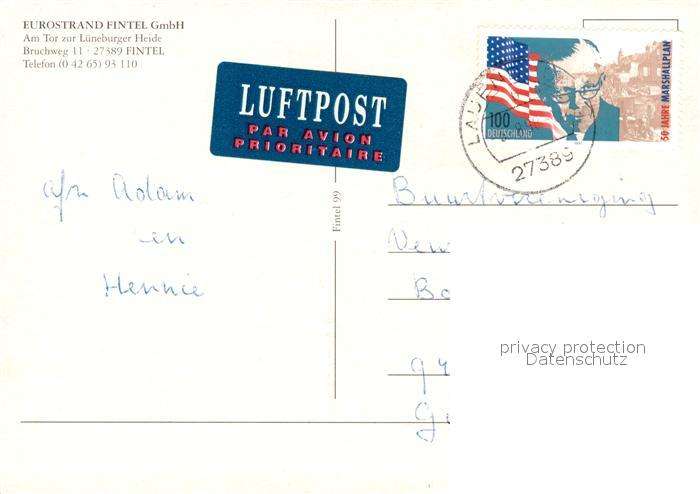 EUROSTRAND FINTEL GmbH
Am Tor zur Lüneburger Heide
Bruchweg 11 · 27389 FINTEL
Telefon (0 42 65) 93 110
LUFTPOST
PAR AVION
PRIORITAIRE
100
DEUTSCHLAND
50 JAHRE MARSHALLPLAN
27389
afz Adam
en
Hennie
Fintel 99
Buurtvereniging
privacy protection
Datenschutz